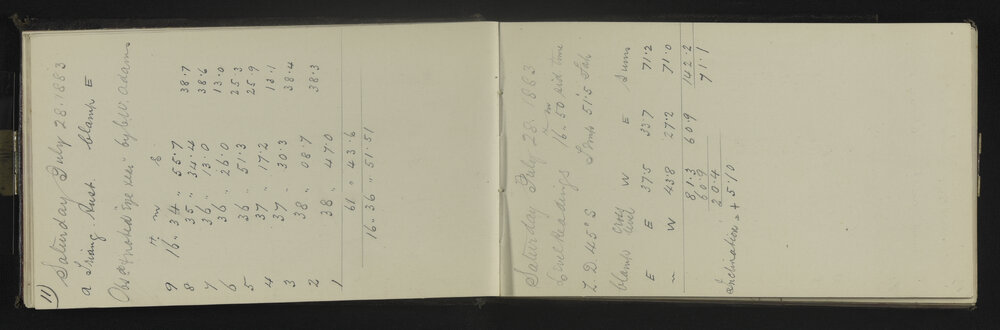 11)
Saturday July 28. 1883
a Triang. Aust. Clamp E
Obsd & noted "Eye & ear" by C.W. Adams
H. m s
9 16 " 34 " 55.7 38.7
8 35 " 34.4 38.6
7 36 " 13.0 13.0
6 36 " 26.0 25.3
5 36 " 51.3 25.9
4 37 " 17.2 13.1
3 37 " 30.3 38.4
2 38 " 08.7
1 38 " 47.0 38.3
61 " 43.6
16 " 36 " 51.51
Saturday July 28. 1883
Level Readings 16 " 50 sid time
Z. D. 45° S Temp 51.5 Fah
Clamp Level W E Sums
E E 37.5 33.7 71.2
" W 43.8 27.2 71.0
81.3 60.9 142.2
60.9 71.1
20.4
Inclination = + 5.10